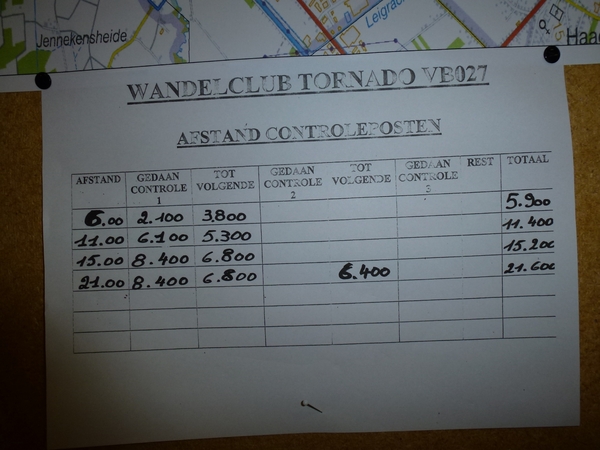 Jennekensheide
Leigrac
Haa
WANDELCLUB TORNADO VB027
AFSTAND CONTROLEPOSTEN
AFSTAND GEDAAN CONTROLE 1 TOT VOLGENDE GEDAAN CONTROLE 2 TOT VOLGENDE GEDAAN CONTROLE 3 REST TOTAAL
6.00 2.100 3.800 5.900
11.00 6.100 5.300 11.400
15.00 8.400 6.800 15.200
21.00 8.400 6.800 6.400 21.600